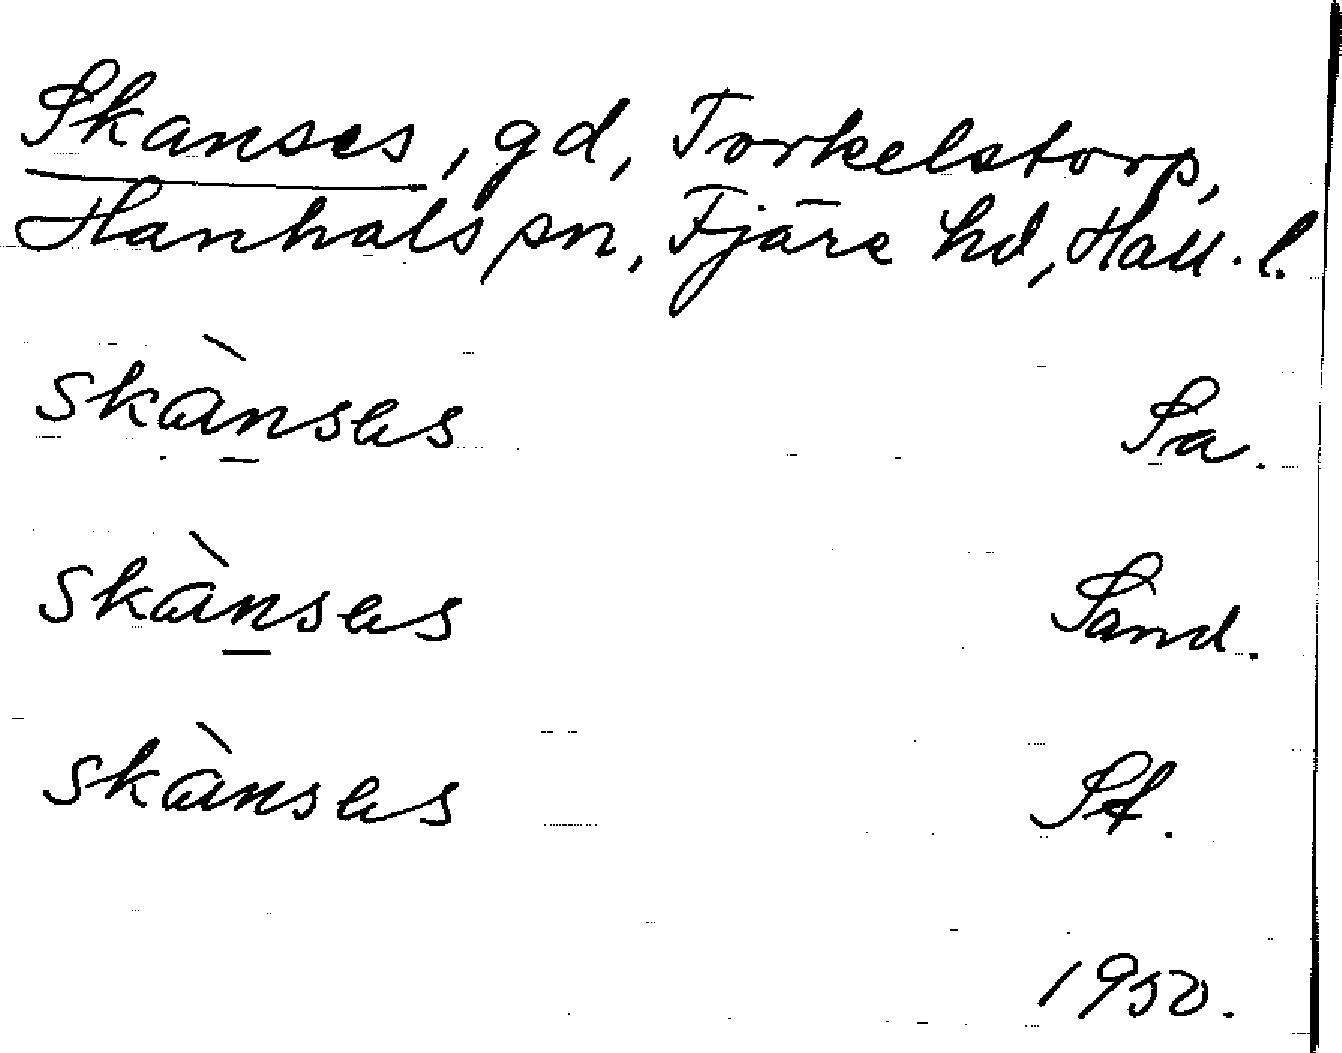 Skanses, gd, Torkelstorp,
Hanhals sn, Fjäre hd, Hall. l.
skànsəs Sa.
skànsəs Sand.
skànsəs St.
1950.